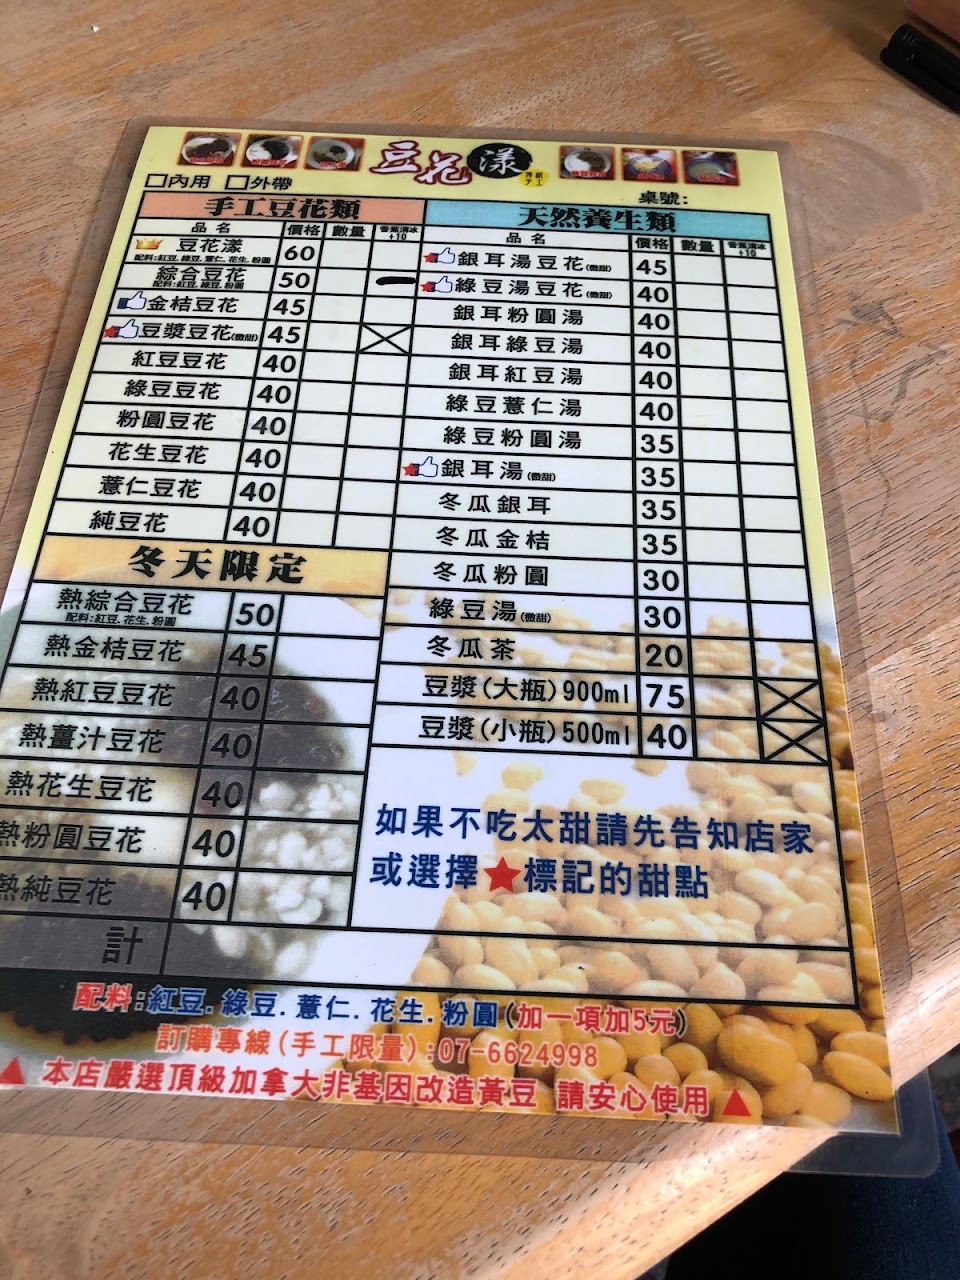 豆花漾
□內用 □外帶
桌號:
手工豆花類
品名 價格 數量 香蕉清冰+10
豆花漾 60
配料:紅豆.綠豆.薏仁.花生.粉圓
綜合豆花 50
配料:紅豆.綠豆.粉圓
金桔豆花 45
豆漿豆花(微甜) 45
紅豆豆花 40
綠豆豆花 40
粉圓豆花 40
花生豆花 40
薏仁豆花 40
純豆花 40
冬天限定
熱綜合豆花 50
配料:紅豆.花生.粉圓
熱金桔豆花 45
熱紅豆豆花 40
熱薑汁豆花 40
熱花生豆花 40
熱粉圓豆花 40
熱純豆花 40
計
天然養生類
品名 價格 數量 香蕉清冰+10
銀耳湯豆花(微甜) 45
綠豆湯豆花(微甜) 40
銀耳粉圓湯 40
銀耳綠豆湯 40
銀耳紅豆湯 40
綠豆薏仁湯 40
綠豆粉圓湯 35
銀耳湯(微甜) 35
冬瓜銀耳 35
冬瓜金桔 35
冬瓜粉圓 30
綠豆湯(微甜) 30
冬瓜茶 20
豆漿(大瓶)900ml 75
豆漿(小瓶)500ml 40
如果不吃太甜請先告知店家
或選擇★標記的甜點
配料:紅豆.綠豆.薏仁.花生.粉圓(加一項加5元)
訂購專線(手工限量):07-6624998
▲ 本店嚴選頂級加拿大非基因改造黃豆 請安心使用 ▲